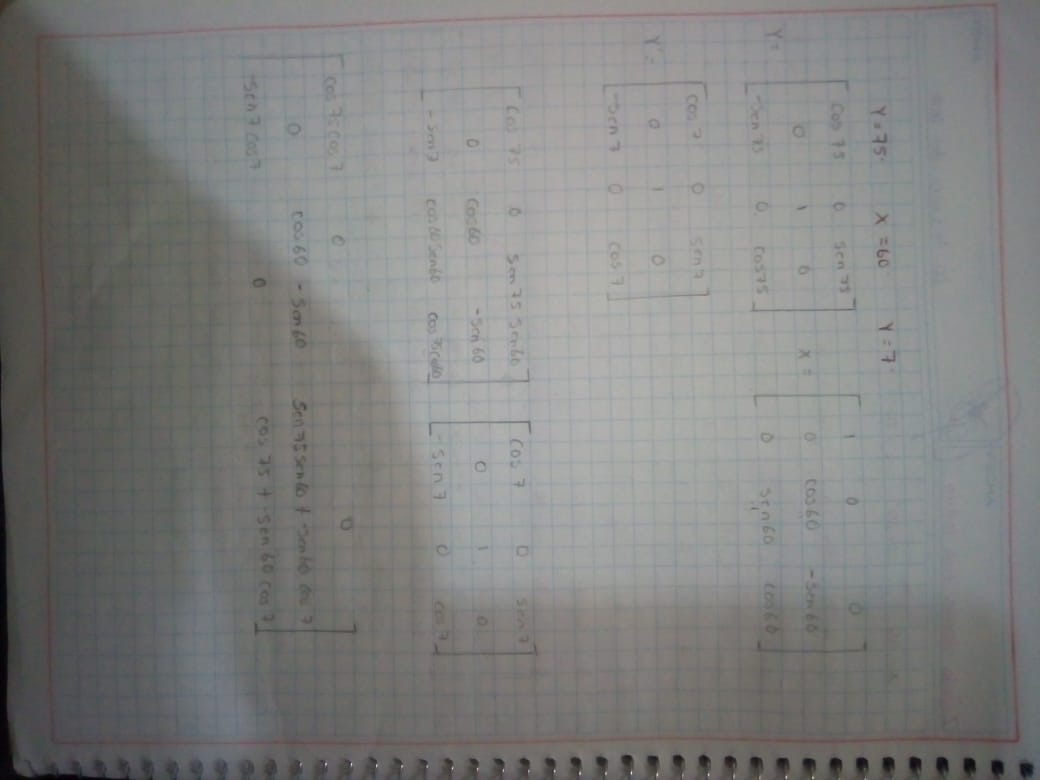 Y=75° X=60 Y=7°
Y= [ cos 75 0 sen 75
0 1 0
-sen 75 0 cos 75 ]
X = [ 1 0 0
0 cos60 -sen60
0 sen60 cos60 ]
Y = [ cos 7 0 sen 7
0 1 0
-sen7 0 cos 7 ]
[ cos 75 0 sen 75 sen60
0 cos60 -sen 60
-sen7 cos60 ] [ cos 7 0 sen 7
0 1 0
-sen 7 0 cos 7 ]
[ cos 75 cos 7 0 0
0 cos60 - sen60 sen 75 sen60 + -sen60 7
-sen 7 cos 7 0 cos 75 + sen 60 cos 7 ]